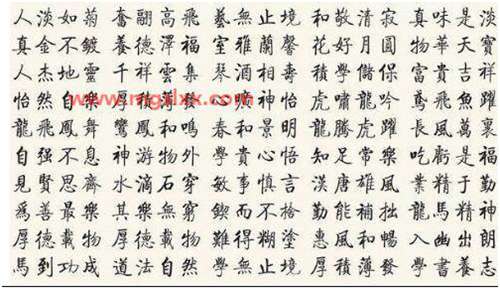 人淡如菊 奮翮高飛 藝無止境 和敬清寂 真味是淡
真金不鍍 養德澤福 室雅蘭馨 花好月圓 物華天寶
人杰地靈 千祥雲集 琴酒相壽 積學儲保 富貴吉祥
怡然自樂 厚積薄發 心曠神怡 虎嘯龍吟 鳶飛魚躍
www.mgxlxx.com
龍飛鳳舞 鸞鳳和鳴 春和景明 龍騰虎躍 長風萬裏
自强不息 神游物外 學貴心悟 知足常樂 吃虧是福
見賢思齊 水滴石穿 敏事慎言 漢唐雄風 業精于勤
爲善最樂 其樂無窮 鍥而不捨 勤能補拙 龍馬精神
厚德載物 厚德載物 難得糊塗 惠風和暢 入幽出朗
馬到功成 道法自然 學無止境 厚積薄發 學書養志